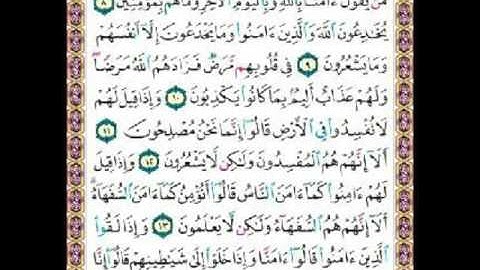 مَن يَقُولُ ءَامَنَّا بِٱللَّهِ وَبِٱلْيَوْمِ ٱلْءَاخِرِ وَمَا هُم بِمُؤْمِنِينَ ٨
يُخَٰدِعُونَ ٱللَّهَ وَٱلَّذِينَ ءَامَنُوا۟ وَمَا يَخْدَعُونَ إِلَّآ أَنفُسَهُمْ
وَمَا يَشْعُرُونَ ٩ فِى قُلُوبِهِم مَّرَضٌ فَزَادَهُمُ ٱللَّهُ مَرَضًا
وَلَهُمْ عَذَابٌ أَلِيمٌۢ بِمَا كَانُوا۟ يَكْذِبُونَ ١٠ وَإِذَا قِيلَ لَهُمْ
لَا تُفْسِدُوا۟ فِى ٱلْأَرْضِ قَالُوٓا۟ إِنَّمَا نَحْنُ مُصْلِحُونَ ١١
أَلَآ إِنَّهُمْ هُمُ ٱلْمُفْسِدُونَ وَلَٰكِن لَّا يَشْعُرُونَ ١٢ وَإِذَا قِيلَ
لَهُمْ ءَامِنُوا۟ كَمَآ ءَامَنَ ٱلنَّاسُ قَالُوٓا۟ أَنُؤْمِنُ كَمَآ ءَامَنَ ٱلسُّفَهَآءُ
أَلَآ إِنَّهُمْ هُمُ ٱلسُّفَهَآءُ وَلَٰكِن لَّا يَعْلَمُونَ ١٣ وَإِذَا لَقُوا۟
ٱلَّذِينَ ءَامَنُوا۟ قَالُوٓا۟ ءَامَنَّا وَإِذَا خَلَوْا۟ إِلَىٰ شَيَٰطِينِهِمْ قَالُوٓا۟ إِنَّا